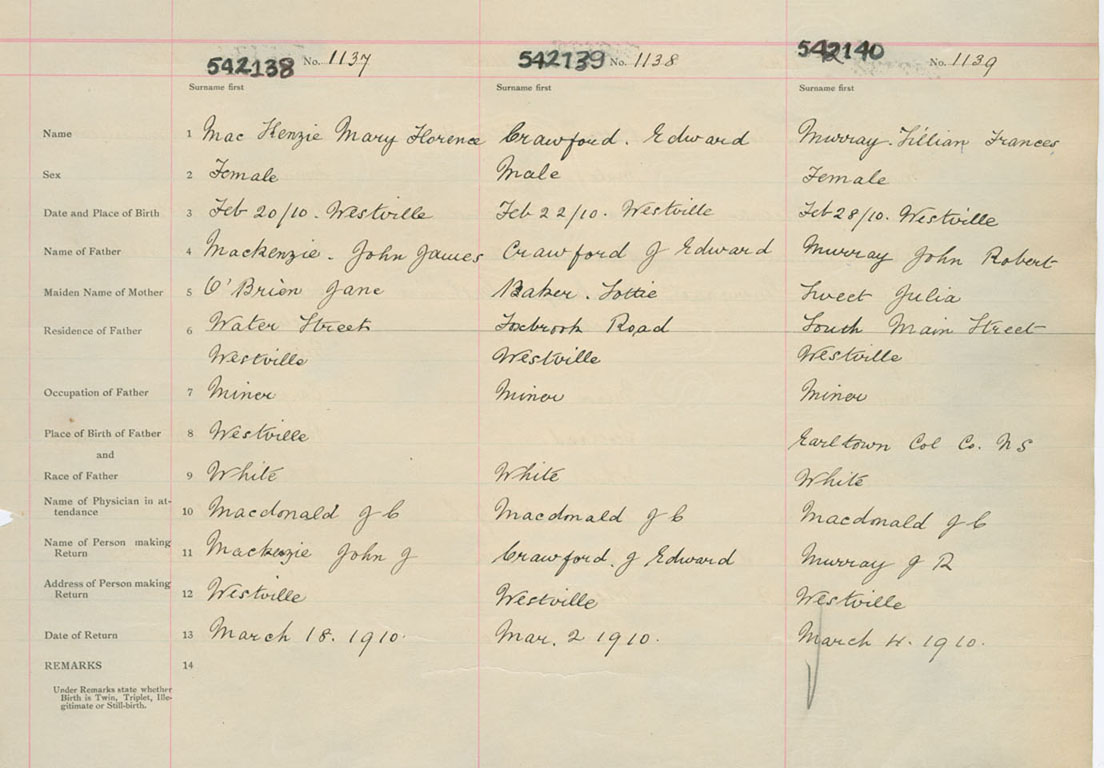 542138 No. 1137 542139 No. 1138 542140 No. 1139
Surname first Surname first Surname first
Name 1 Mac Kenzie Mary Florence Crawford. Edward Murray. Lillian Frances
Sex 2 Female Male Female
Date and Place of Birth 3 Feb 20/10. Westville Feb 22/10. Westville Feb 28/10. Westville
Name of Father 4 Mackenzie. John James Crawford J Edward Murray John Robert
Maiden Name of Mother 5 O'Brien Jane Baker. Lottie Sweet Julia
Residence of Father 6 Water Street Foxbrook Road South Main Street
Westville Westville Westville
Occupation of Father 7 Miner Miner Miner
Place of Birth of Father 8 Westville Earltown Col Co. NS
and
Race of Father 9 White White White
Name of Physician in at-
tendance 10 Macdonald J C Macdonald J C Macdonald J C
Name of Person making
Return 11 Mackenzie John J Crawford. J Edward Murray J R
Address of Person making
Return 12 Westville Westville Westville
Date of Return 13 March 18. 1910. Mar. 2 1910. March 4. 1910.
REMARKS 14
Under Remarks state whether
Birth is Twin, Triplet, Ille-
gitimate or Still-birth.